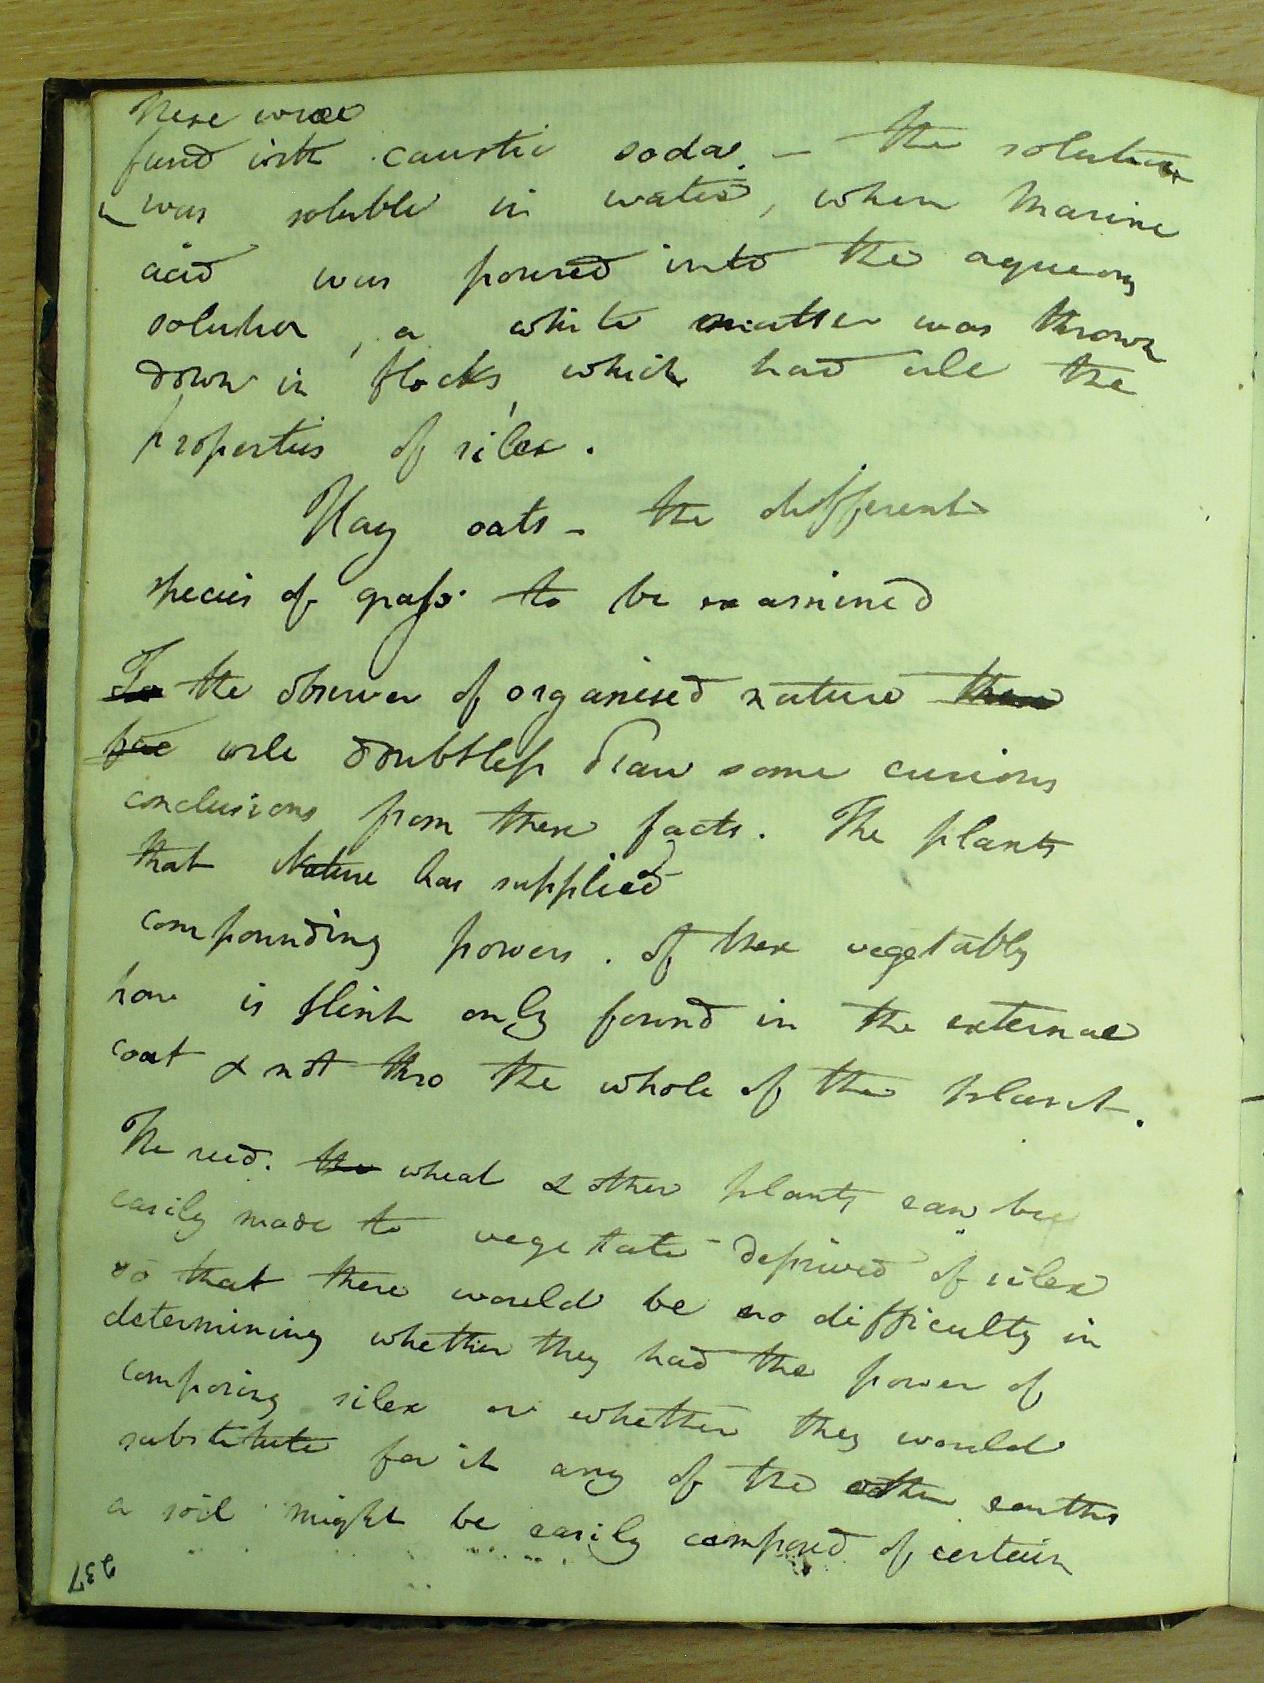 These were
fused with caustic soda. – the solution
was soluble in water, when Marine
acid was poured into the aqueous
solution, a white matter was thrown
down in flocks, which had all the
properties of silex.
Hay oats – the different
species of grass to be examined
To the observer of organised nature
will doubtless draw some curious
conclusions from these facts. The plants
that Nature has supplied
compounding powers. of these vegetables
how is flint only found in the external
coat & not thro the whole of the plant.
The reed. the wheat & other plants can be
easily made to vegetate – deprived of silex
so that there would be no difficulty in
determining whether they had the power of
composing silex or whether they would
substitute for it any of the other earths
a soil might be easily composed of certain
237